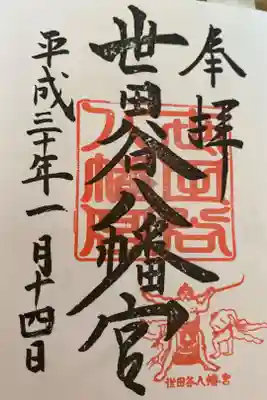 奉拝
世田谷八幡宮
平成三十年一月十四日
世田谷八幡宮
世田谷八幡宮